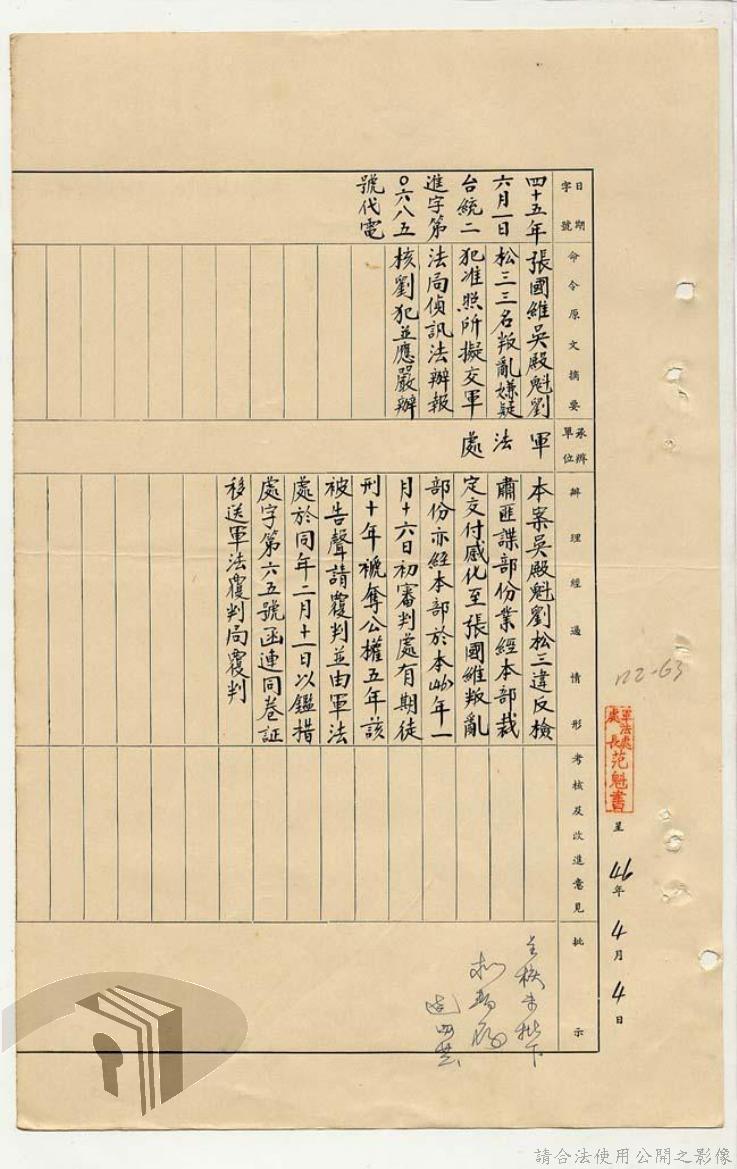 122-63
軍法處
處長范魁書
呈 46年4月4日
日期
字號
四十五年
六月一日
台統二
進字第
○六八五
號代電
命令原文摘要
張國維吳殿魁劉
松三三名叛亂嫌疑
犯准照所擬交軍
法局偵訊法辦報
核劉犯並應嚴辦
承辦
單位
軍法處
辦理經過情形
本案吳殿魁劉松三違反檢
肅匪諜部份業經本部裁
定交付感化至張國維叛亂
部份亦經本部於本46年一
月十六日初審判處有期徒
刑十年褫奪公權五年該
被告聲請覆判並由軍法
處於同年二月十一日以鑑措
處字第六五號函連同卷証
移送軍法覆判局覆判
考核及改進意見
批示
請合法使用公開之影像